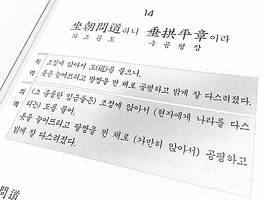 14
坐朝問道하니 垂拱平章이라
좌조문도 수공평장
직역 조정에 앉아서 도(道)를 물으니,
옷을 늘어뜨리고 팔짱을 낀 채로 공평하고 밝게 잘 다스려졌다.
의역 (그 훌륭한 임금들은) 조정에 앉아서 (현자에게 나라를 다스
리는) 도를 물어,
옷을 늘어뜨리고 팔짱을 낀 채로 (가만히 앉아서) 공평하고
밝게 잘 다스려졌다.
問道